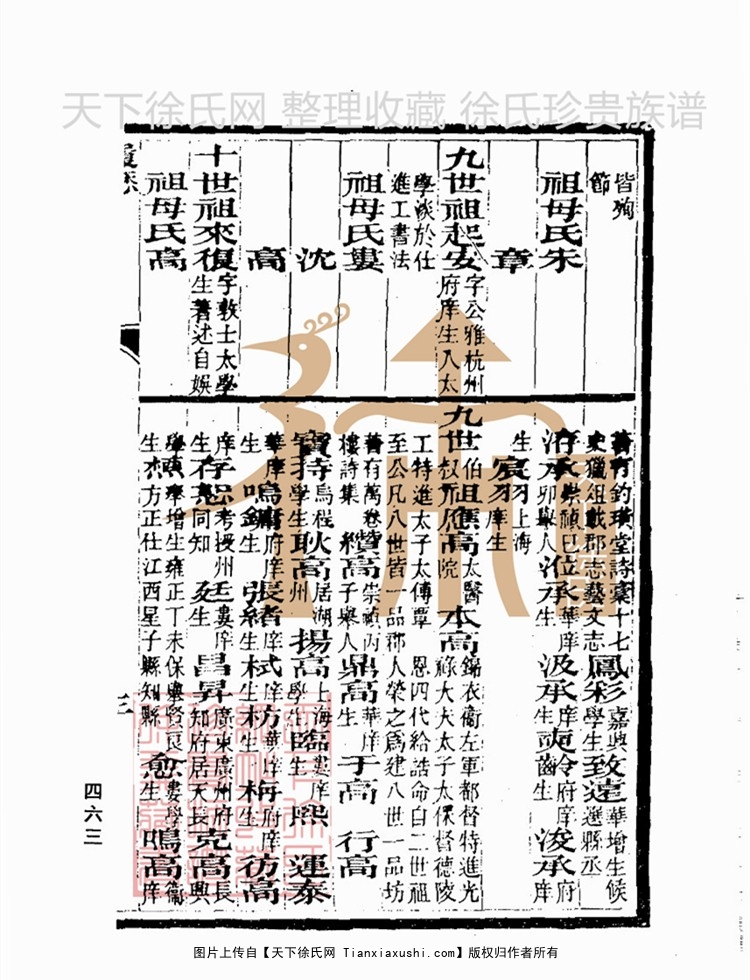 天下徐氏网 整理收藏 徐氏珍贵族谱
皆殉
節
祖母氏朱
章
九世祖起安
字公雅杭州
府庠生入太
學淡於仕
進工書法
祖母氏婁
沈
高
十世祖來復
字敦士太學
生著述自娛
祖母氏高
著有釣璜堂詩稾十七
史獵俎載郡志藝文志
鳳彩
嘉興
學生
致遠
華增生候
選縣丞
汲承
庠生
浚承
府庠
生
宸羽
上海
庠生
九世
伯叔
祖應高
太醫院
本高
錦衣衞左軍都督特進光
祿大夫太子太保督德陵
工特進太子太傅覃 恩四代給誥命白二世祖
至公凡八世皆一品郡人榮之爲建八世一品坊
著有萬卷
樓詩集
續高
崇禎丙
子舉人
鼎高
華庠
生
于高
行高
寶持
烏程
學生
耿高
居湖
州
揚高
上海
學生
臨
婁庠
生
熙
運泰
華庠
生
鳴鏞
府庠
生
張緒
庠生
栻
庠生
枋
華庠
生
梅
府庠
生
彷高
庠生
存恕
考授州
同知
廷
婁庠
生
昌昇
廣東廣州府
知府居天長
克高
長興
學增生雍正丁未保舉賢良
方正仕江西星子縣知縣
愈
婁學
生
鳴高
衞庠
三
四六三
图片上传自【天下徐氏网 Tianxiaxushi.com】版权归作者所有